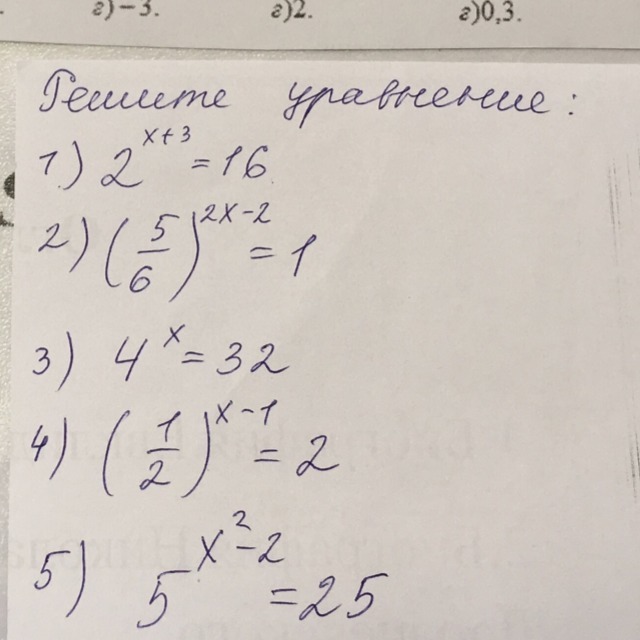 г)-3. г)2. г)0,3.
Решите уравнение:
1) 2^{x+3} = 16
2) (5/6)^{2x-2} = 1
3) 4^x = 32
4) (1/2)^{x-1} = 2
5) 5^{x^2-2} = 25